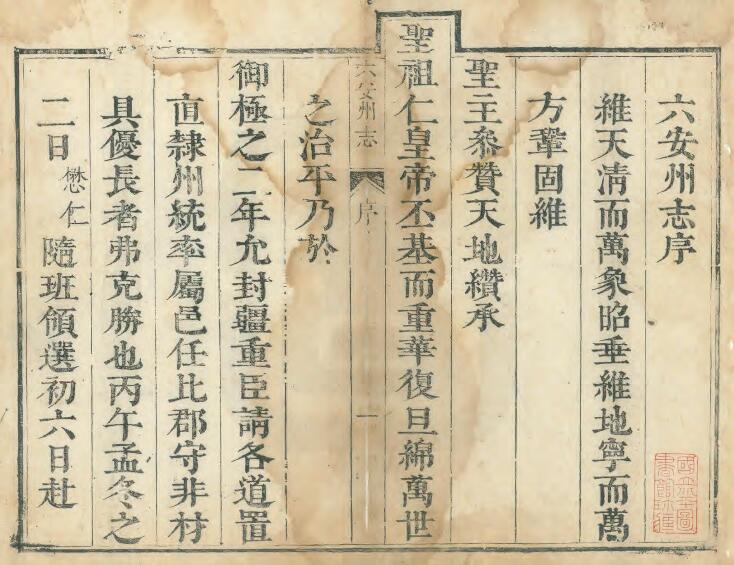 六安州志序
維天清而萬象昭垂維地寧而萬
方鞏固維
聖主叅贊天地纘承
聖祖仁皇帝丕基而重華復旦綿萬世
六安州志 序 一
之治平乃於
御極之二年允封疆重臣請各道置
直隸州統率屬邑任比郡守非材
具優長者弗克勝也丙午孟冬之
二日懋仁隨班領選初六日赴